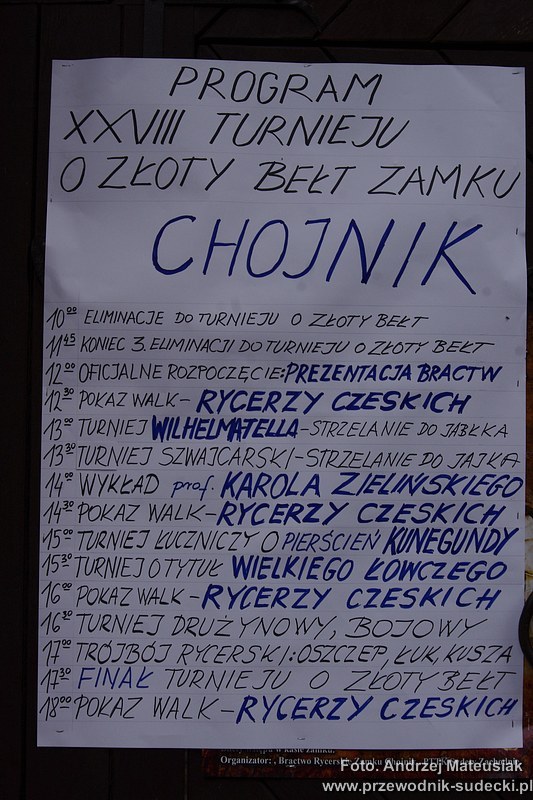 PROGRAM
XXVIII TURNIEJU
O ZŁOTY BEŁT ZAMKU
CHOJNIK
10⁰⁰ ELIMINACJE DO TURNIEJU O ZŁOTY BEŁT
11⁴⁵ KONIEC 3. ELIMINACJI DO TURNIEJU O ZŁOTY BEŁT
12⁰⁰ OFICJALNE ROZPOCZĘCIE: PREZENTACJA BRACTW
12³⁰ POKAZ WALK – RYCERZY CZESKICH
13⁰⁰ TURNIEJ WILHELMA TELLA – STRZELANIE DO JABŁKA
13³⁰ TURNIEJ SZWAJCARSKI – STRZELANIE DO JAJKA
14⁰⁰ WYKŁAD prof. KAROLA ZIELIŃSKIEGO
14³⁰ POKAZ WALK – RYCERZY CZESKICH
15⁰⁰ TURNIEJ ŁUCZNICZY O PIERŚCIEŃ KUNEGUNDY
15³⁰ TURNIEJ O TYTUŁ WIELKIEGO ŁOWCZEGO
16⁰⁰ POKAZ WALK – RYCERZY CZESKICH
16³⁰ TURNIEJ DRUŻYNOWY, BOJOWY
17⁰⁰ TRÓJBÓJ RYCERSKI: OSZCZEP, ŁUK, KUSZA
17³⁰ FINAŁ TURNIEJU O ZŁOTY BEŁT
18⁰⁰ POKAZ WALK – RYCERZY CZESKICH
w kasie zamku.
Organizator: , Bractwo Rycerskie Zamku Chojnik
Foto. Andrzej Mateusiak
www.przewodnik-sudecki.pl